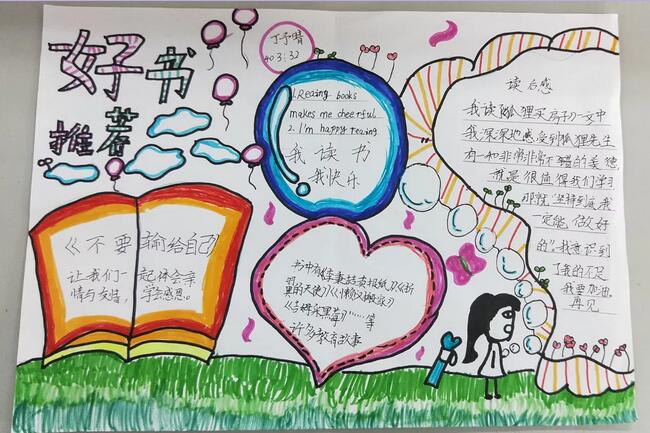 好书
推荐
丁予晴
1.Reaing books
makes me cheerful
2. I'm happy reaing
我读书
我快乐
《不要输给自己》
让我们一起体会亲
情与友谊，学会感恩。
书中有《卖报纸》《折
翼的天使》《小愉又搬家》
《吉姆采黑莓》……等
许多教育故事
读后感
我读狐狸买房子一文中
我深深地感受到狐狸先生
有一种非常非常不错的美德
就是很值得我们学习
那就“坚持到底我
一定能做好
的”。我意识到
了我的不足
我要加油。
再见